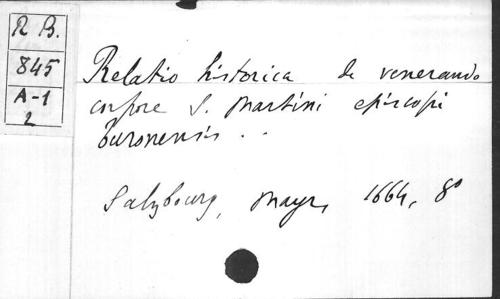 R B.
845
A-1
2
Relatio historica de venerando
corpore S. Martini episcopi
turonensis . .
Salzbourg, Mayr, 1664, 8°